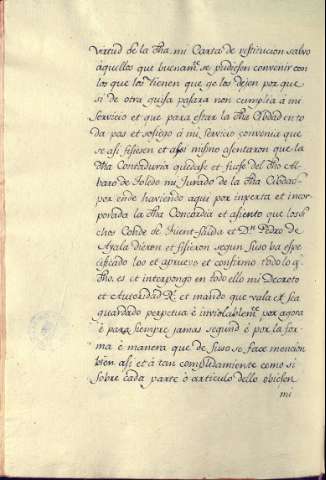 Vertud de la dha. mi Carta de restitucion salvo
aquellos que buenamte. se pudiesen convenir con
los que los tienen que ge los dejen por que
si de otra guisa pasara non cumplia á mi
servicio et que para estar la dha Cibdad en to
da pas et sosiego á mi servicio convenia que
se asi fisiesen et asi mismo asentaron que la
dha Contaduria quedase et fuese del dho Al-
baro de Toledo mi Jurado de la dha Cibdad
por ende haviendo aqui por inserta et incor-
porada la dha Concordia et asiento que los di
chos Conde de Fuent-salida et Dn. Pedro de
Ayala dieron et fisieron segun suso ba espe-
cificado loo et apruevo et confirmo todo lo q.
dho. es et interpongo en todo ello mi Decreto
et Autoridad Rl. et mando que vala et sea
guardado perpetua é inviolablemte. por agora
é para siempre jamas segund é por la for-
ma é manera que de suso se face mencion
bien asi et á tan complidamente como si
sobre cada parte o articulo dello obiesen
mi